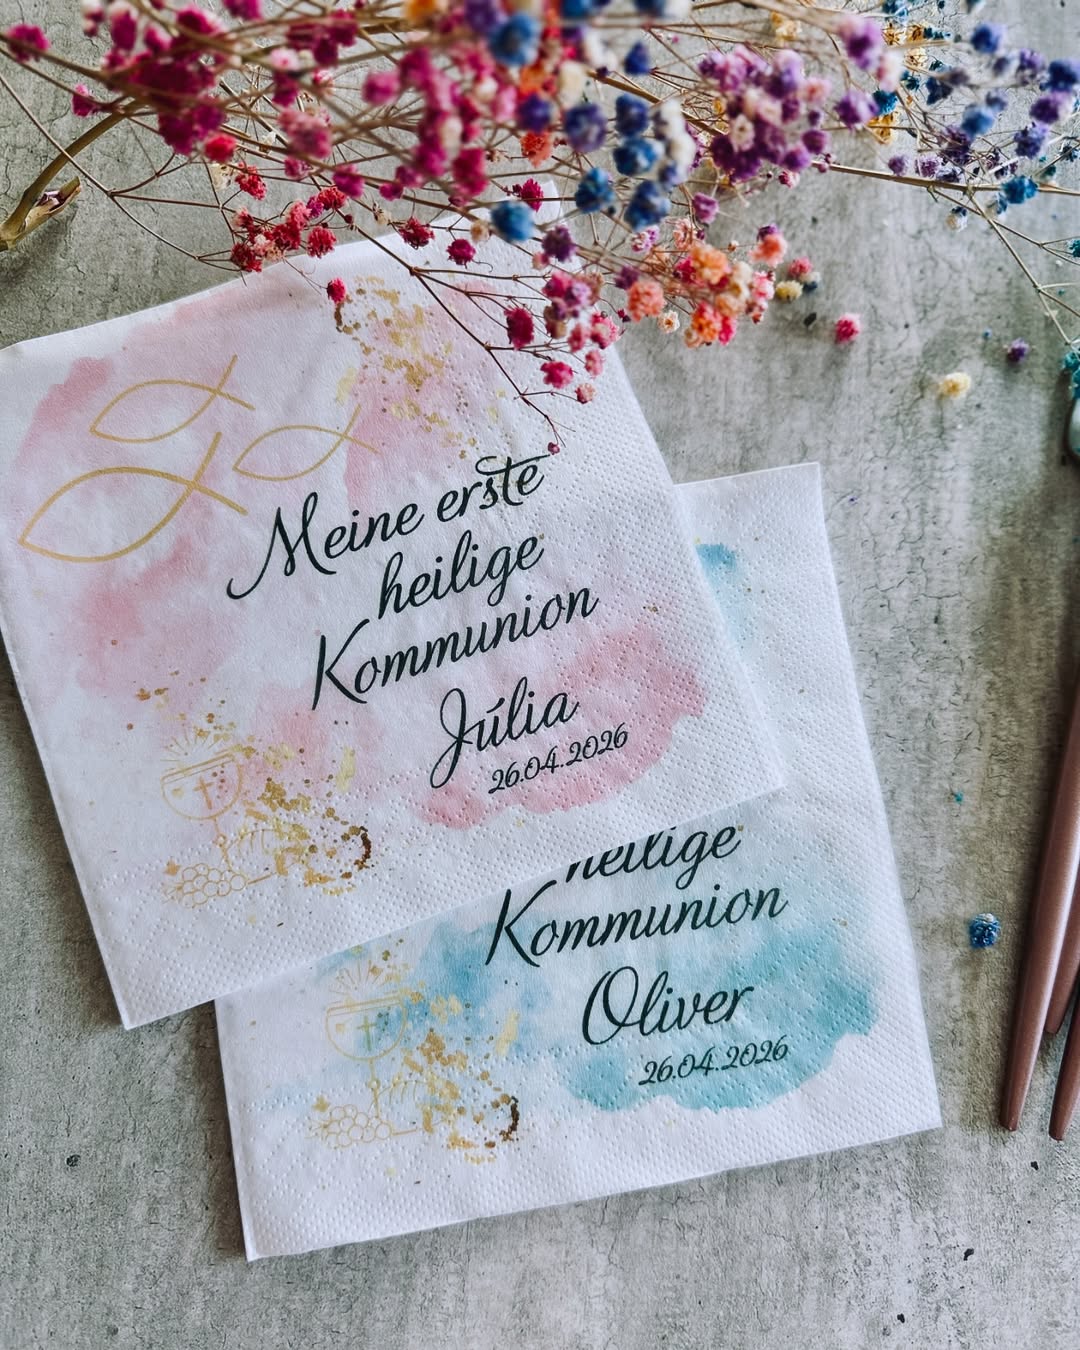 Meine erste
heilige
Kommunion
Júlia
26.04.2026
heilige
Kommunion
Oliver
26.04.2026